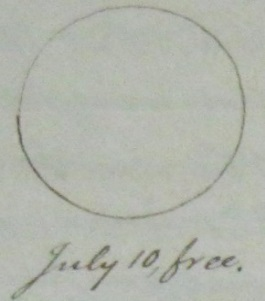 July 10, free.